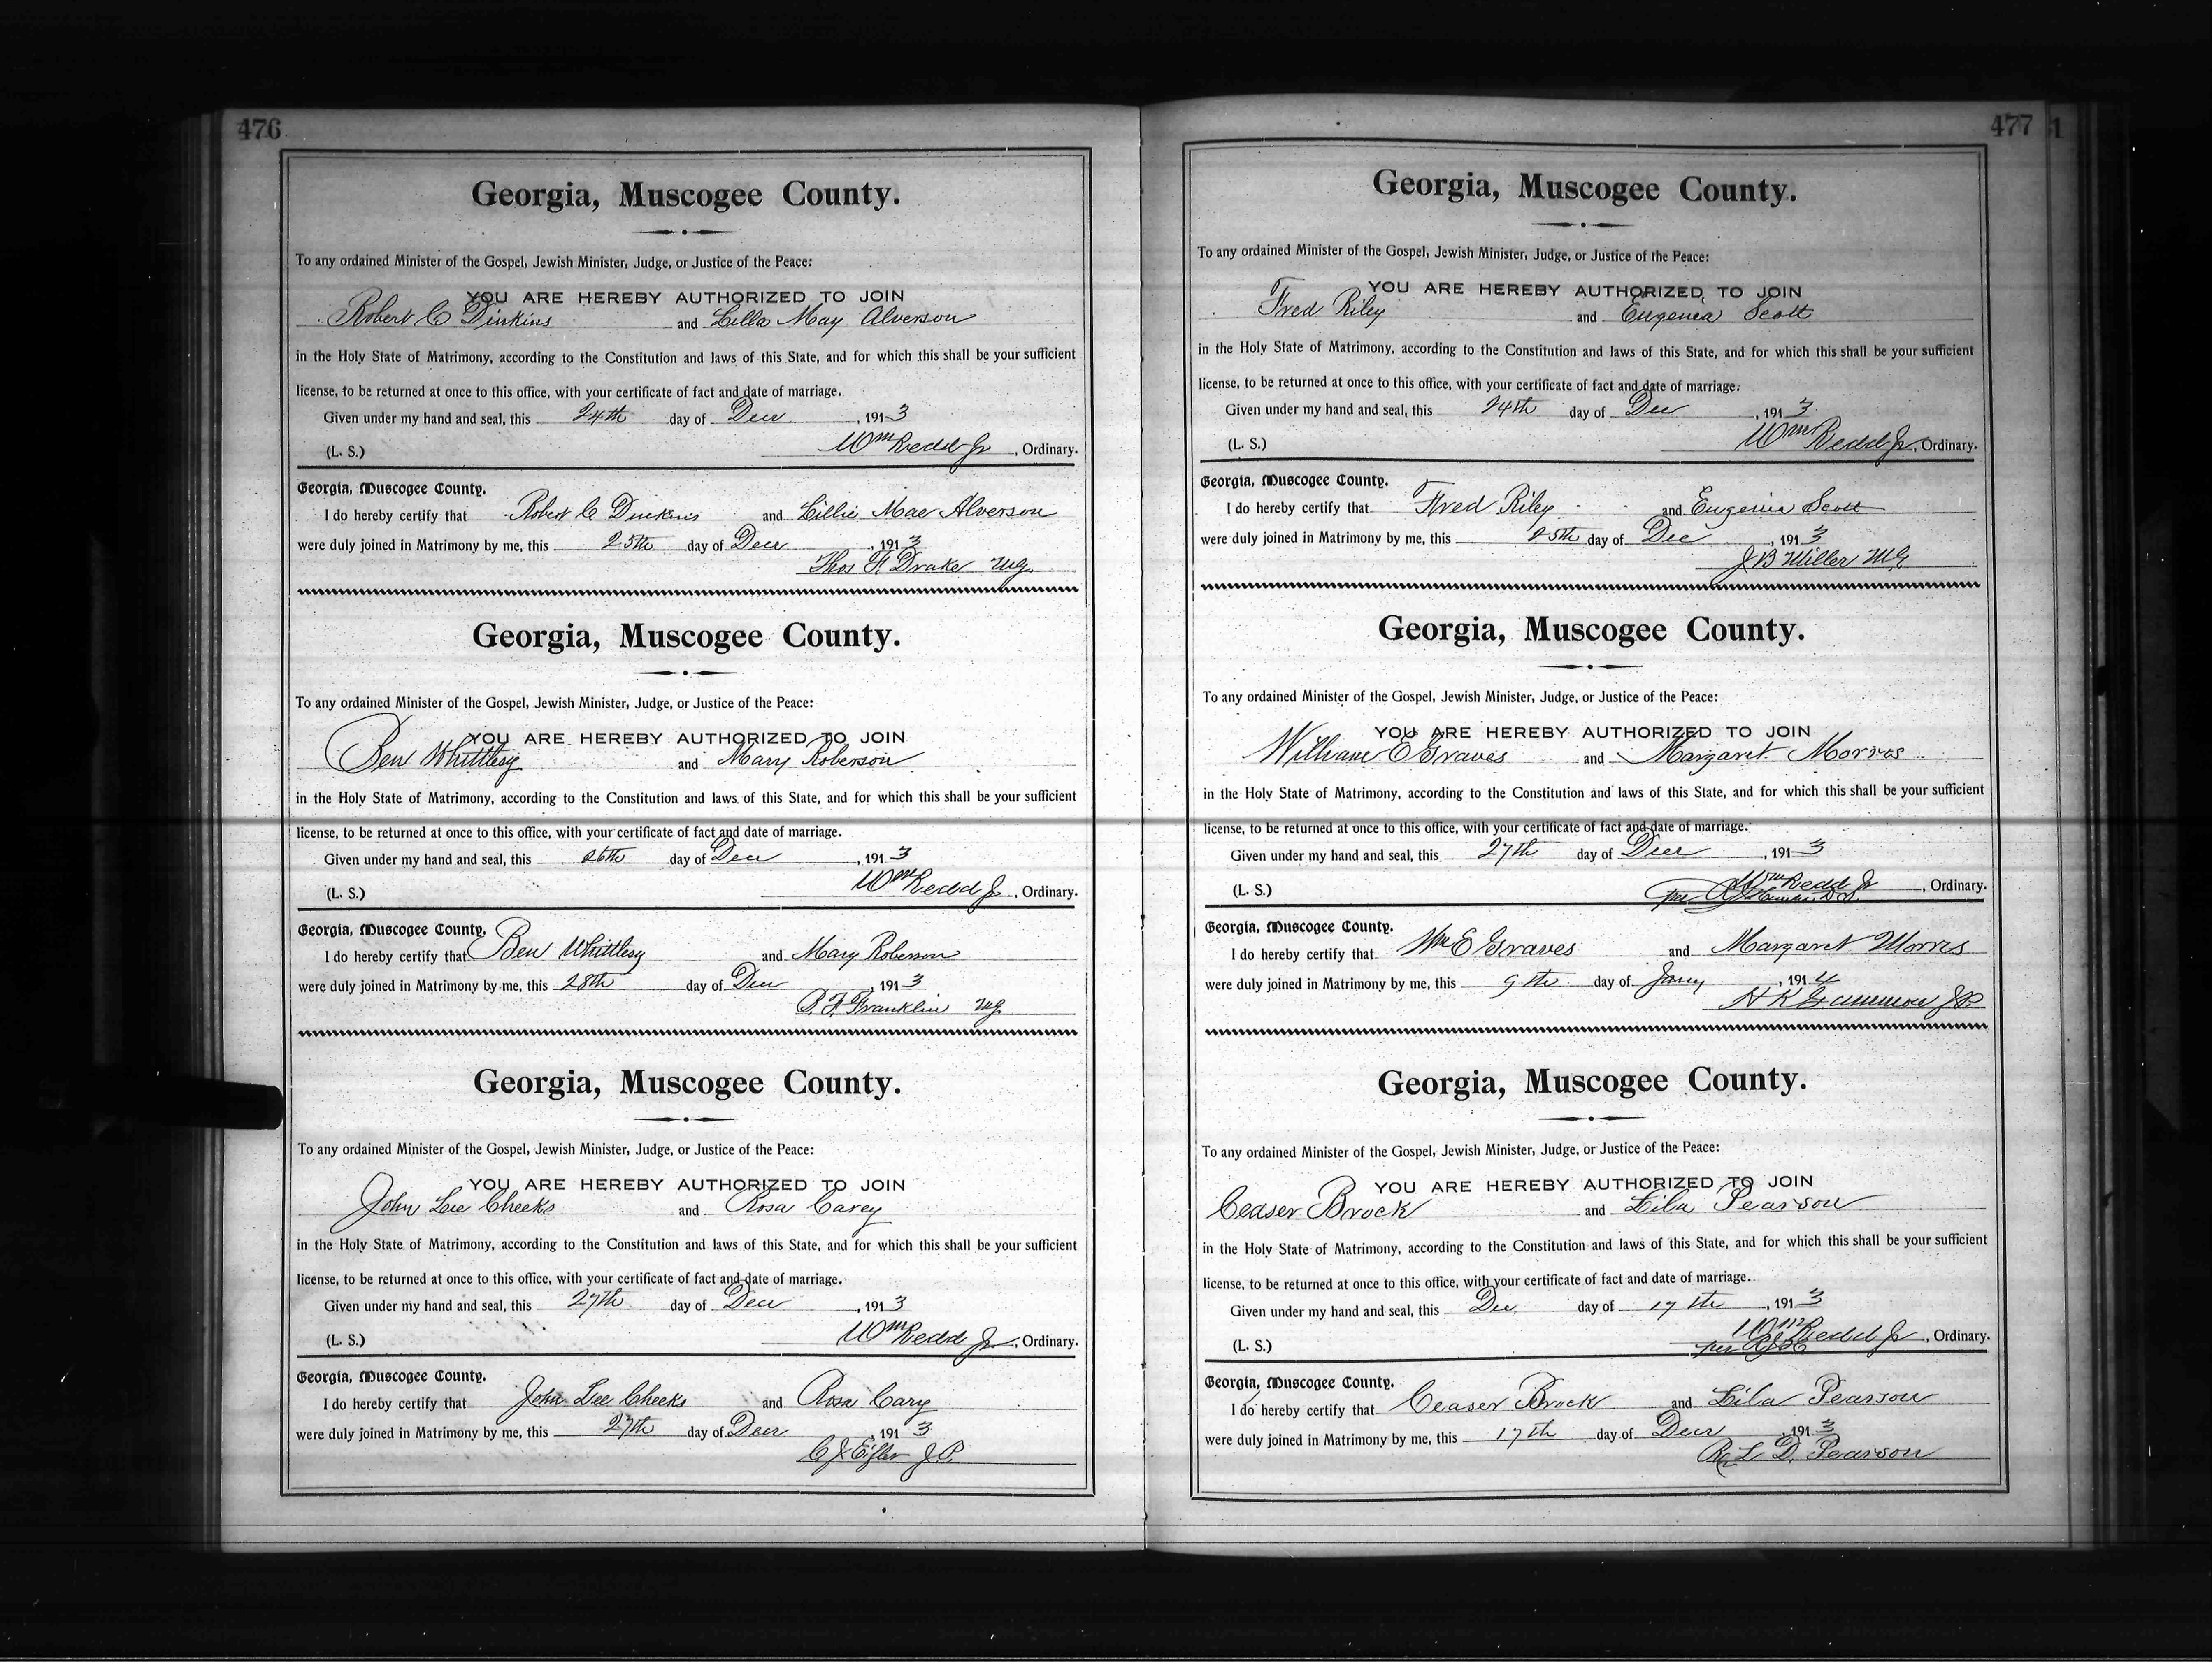 476
Georgia, Muscogee County.
To any ordained Minister of the Gospel, Jewish Minister, Judge, or Justice of the Peace:
YOU ARE HEREBY AUTHORIZED TO JOIN
Robert C Dinkins and Lilla May Alverson
in the Holy State of Matrimony, according to the Constitution and laws of this State, and for which this shall be your sufficient
license, to be returned at once to this office, with your certificate of fact and date of marriage.
Given under my hand and seal, this 24th day of Decr, 1913
(L. S.) Wm Redd Jr, Ordinary.
Georgia, Muscogee County.
I do hereby certify that Robert C Dinkins and Lillie Mae Alverson
were duly joined in Matrimony by me, this 25th day of Decr, 1913
Thos F. Drake MG
Georgia, Muscogee County.
To any ordained Minister of the Gospel, Jewish Minister, Judge, or Justice of the Peace:
YOU ARE HEREBY AUTHORIZED TO JOIN
Ben Whittlesy and Mary Roberson
in the Holy State of Matrimony, according to the Constitution and laws of this State, and for which this shall be your sufficient
license, to be returned at once to this office, with your certificate of fact and date of marriage.
Given under my hand and seal, this 26th day of Decr, 1913
(L. S.) Wm Redd Jr, Ordinary.
Georgia, Muscogee County.
I do hereby certify that Ben Whittlesy and Mary Roberson
were duly joined in Matrimony by me, this 28th day of Decr, 1913
Franklin MG
Georgia, Muscogee County.
To any ordained Minister of the Gospel, Jewish Minister, Judge, or Justice of the Peace:
YOU ARE HEREBY AUTHORIZED TO JOIN
John Lee Cheeks and Rosa Carey
in the Holy State of Matrimony, according to the Constitution and laws of this State, and for which this shall be your sufficient
license, to be returned at once to this office, with your certificate of fact and date of marriage.
Given under my hand and seal, this 27th day of Decr, 1913
(L. S.) Wm Redd Jr, Ordinary.
Georgia, Muscogee County.
I do hereby certify that John Lee Cheeks and Rosa Cary
were duly joined in Matrimony by me, this 27th day of Decr, 1913
J.P.
477
1
Georgia, Muscogee County.
To any ordained Minister of the Gospel, Jewish Minister, Judge, or Justice of the Peace:
YOU ARE HEREBY AUTHORIZED TO JOIN
Fred Riley and Eugenia Scott
in the Holy State of Matrimony, according to the Constitution and laws of this State, and for which this shall be your sufficient
license, to be returned at once to this office, with your certificate of fact and date of marriage.
Given under my hand and seal, this 24th day of Dec, 1913
(L. S.) Wm Redd Jr, Ordinary.
Georgia, Muscogee County.
I do hereby certify that Fred Riley and Eugenia Scott
were duly joined in Matrimony by me, this 25th day of Dec, 1913
J B Miller MG
Georgia, Muscogee County.
To any ordained Minister of the Gospel, Jewish Minister, Judge, or Justice of the Peace:
YOU ARE HEREBY AUTHORIZED TO JOIN
William E Graves and Margaret Morris
in the Holy State of Matrimony, according to the Constitution and laws of this State, and for which this shall be your sufficient
license, to be returned at once to this office, with your certificate of fact and date of marriage.
Given under my hand and seal, this 27th day of Decr, 1913
(L. S.) Wm Redd Jr, Ordinary.
per
Georgia, Muscogee County.
I do hereby certify that Wm E Graves and Margaret Morris
were duly joined in Matrimony by me, this 9th day of Jany, 1914
H K Gammon JP.
Georgia, Muscogee County.
To any ordained Minister of the Gospel, Jewish Minister, Judge, or Justice of the Peace:
YOU ARE HEREBY AUTHORIZED TO JOIN
Ceaser Brock and Lila Pearson
in the Holy State of Matrimony, according to the Constitution and laws of this State, and for which this shall be your sufficient
license, to be returned at once to this office, with your certificate of fact and date of marriage.
Given under my hand and seal, this Dec day of 17th, 1913
(L. S.) Wm Redd Jr, Ordinary.
per
Georgia, Muscogee County.
I do hereby certify that Ceaser Brock and Lila Pearson
were duly joined in Matrimony by me, this 17th day of Decr, 1913
Rev L. D. Pearson